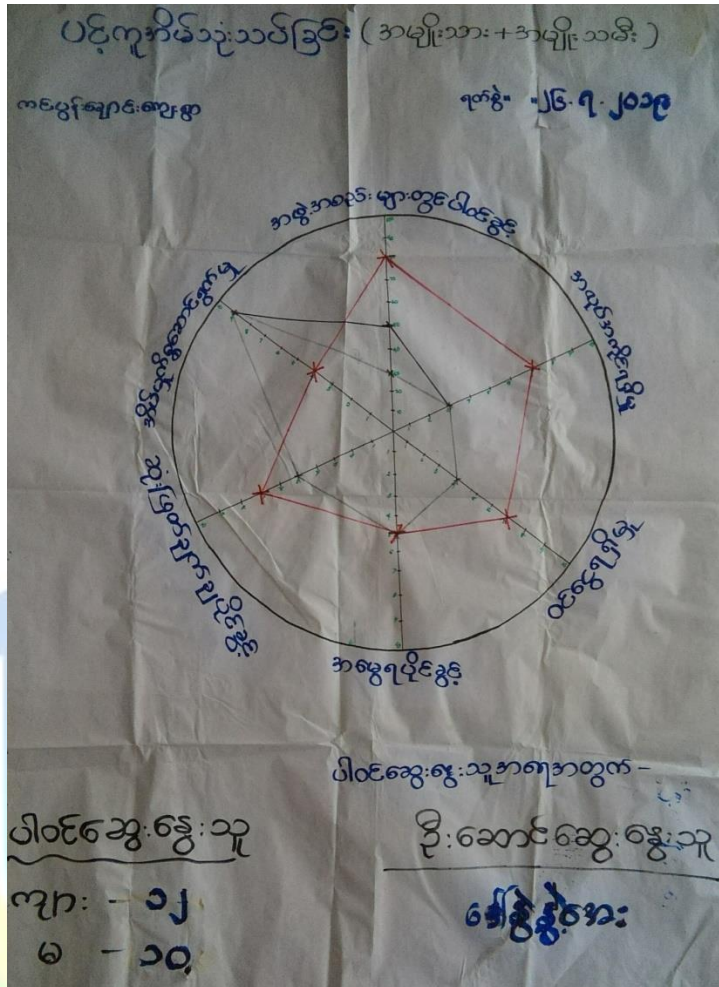 ပင့်ကူအိမ်သုံးသပ်ခြင်း (အမျိုးသား+အမျိုးသမီး)
ကင်ပွန်းချောင်းကျေးရွာ
ရက်စွဲ။ ။၂၆.၇.၂၀၁၉
အဖွဲ့အစည်းများတွင်ပါဝင်ခွင့်
အလုပ်အကိုင်ရရှိမှု
ဝင်ငွေရရှိမှု
အမွေရပိုင်ခွင့်
ဆုံးဖြတ်ချက်ချပိုင်ခွင့်
အိမ်မှုကိစ္စဆောင်ရွက်မှု
ပါဝင်ဆွေးနွေးသူအရေအတွက် -
ပါဝင်ဆွေးနွေးသူ
ကျား - ၁၂
မ - ၁၀
ဦးဆောင်ဆွေးနွေးသူ